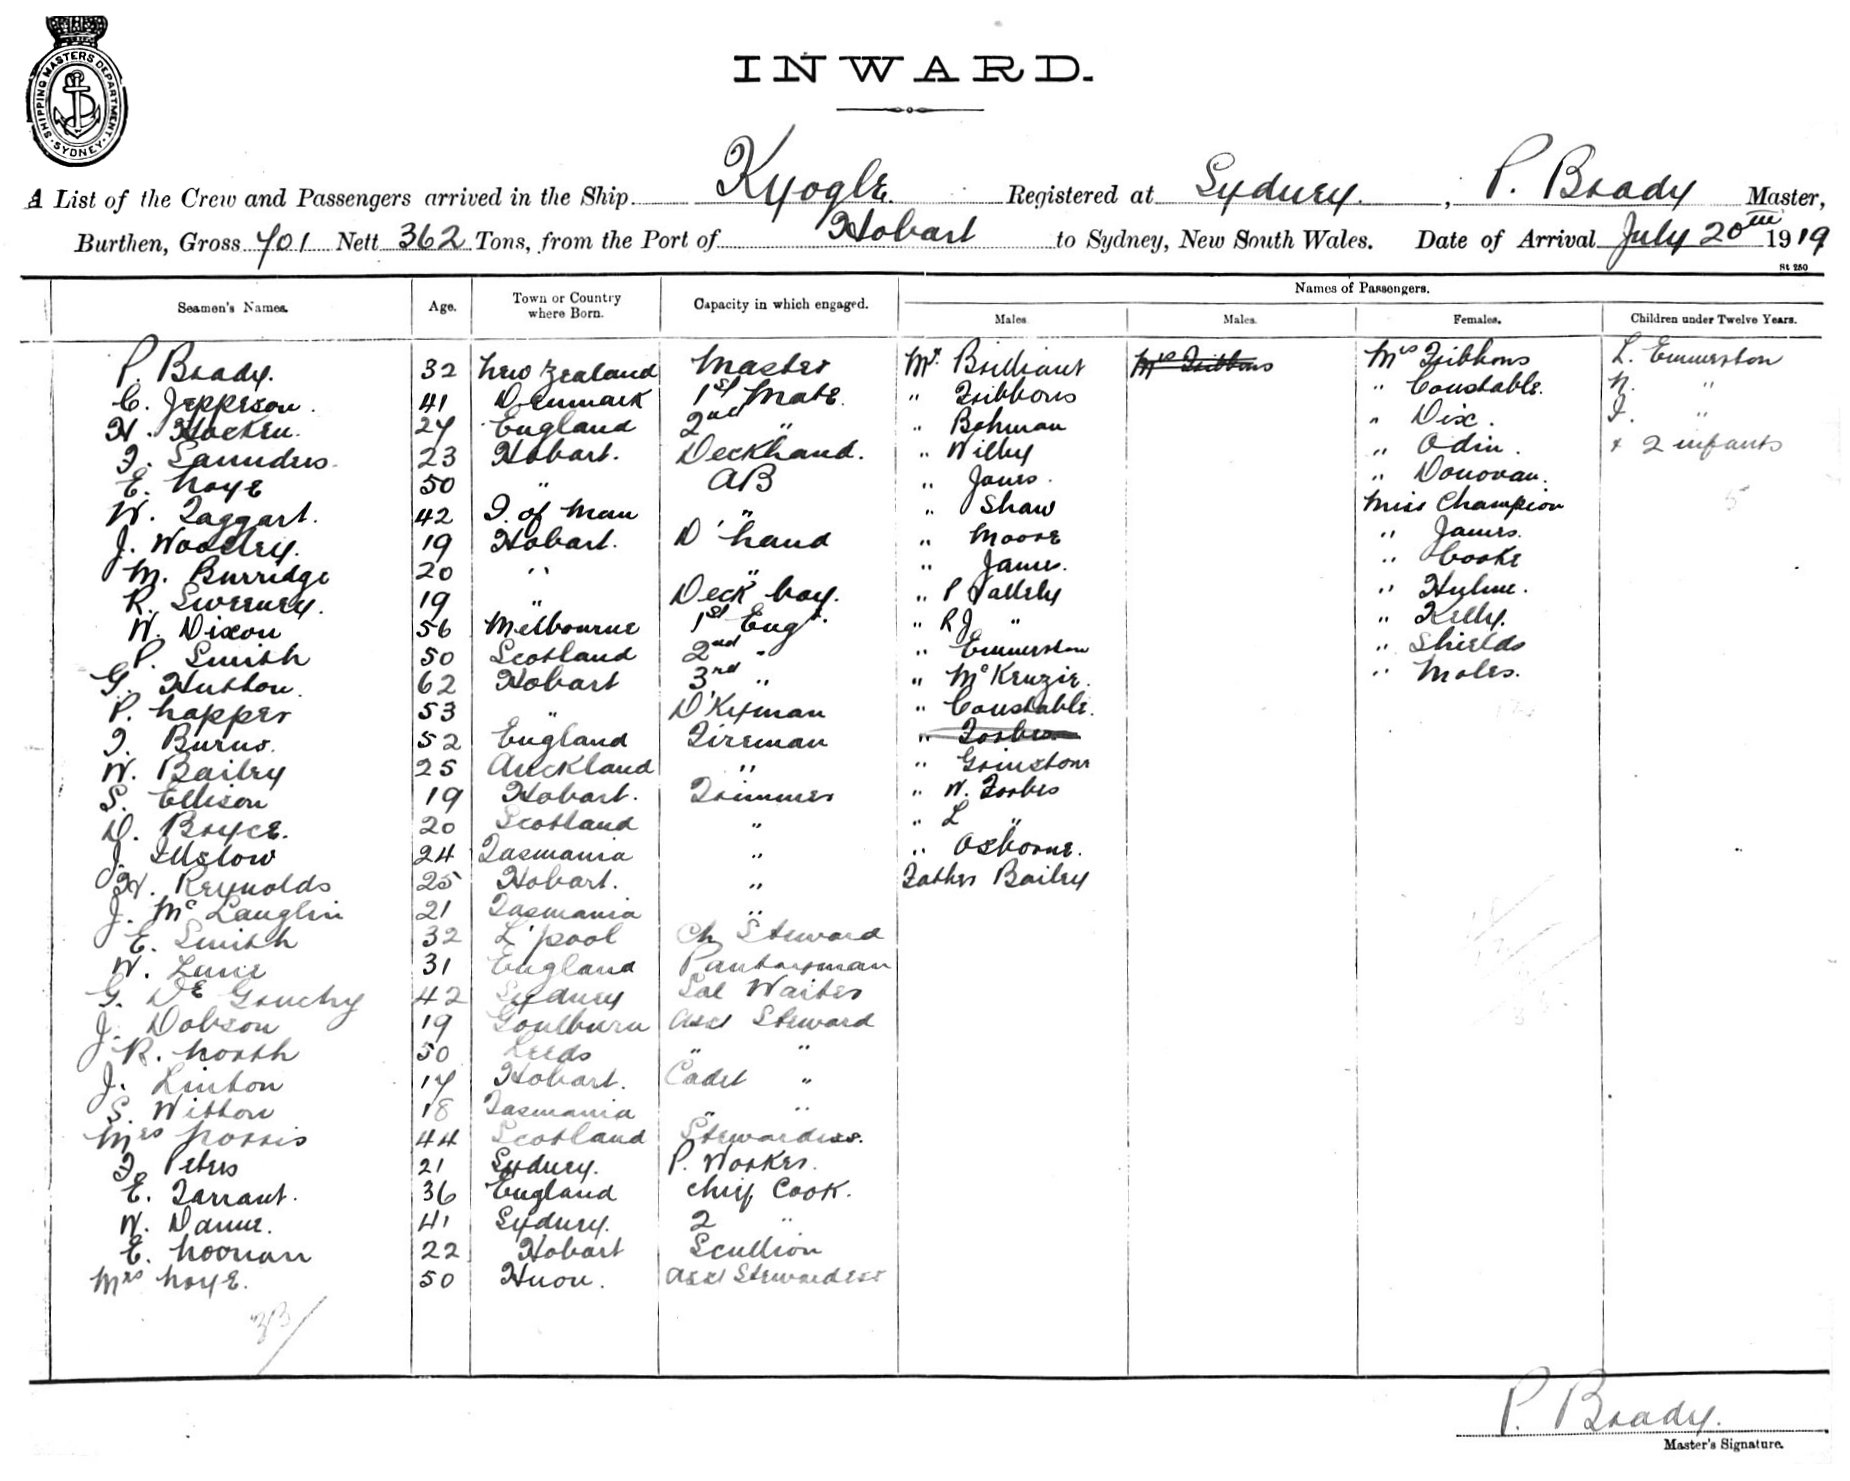 SHIPPING MASTERS DEPARTMENT SYDNEY
INWARD.
A List of the Crew and Passengers arrived in the Ship Kyogle. Registered at Sydney. , P. Brady Master,
Burthen, Gross 701 Nett 362 Tons, from the Port of Hobart to Sydney, New South Wales. Date of Arrival July 20th 1919
St 250
Names of Passengers.
Seamen's Names. Age. Town or Country where Born. Capacity in which engaged. Males. Males. Females. Children under Twelve Years.
P. Brady. 32 New Zealand Master Mr. Brilliant Mrs Fribbons Mrs Fribbons L. Emmerston
C. Jeppeson. 41 Denmark 1st Mate. " Fribbons " Constable. N. "
H. Hocken. 27 England 2nd " " Bohman " Dix. F. "
F. Saunders. 23 Hobart. Deckhand. " Wilby " Odin. + 2 infants
E. Noye 50 " AB " Jones. " Donovan. 5
W. Taggart. 42 I. of Man " " Shaw Miss Champion
J. Woolley. 19 Hobart. D'hand " Moore " James.
M. Burridge 20 " " " James. " Cooke
R. Sweeney. 19 " Deck boy. " P Galleby " Hulme.
W. Dixon 56 Melbourne 1st Engr. " R J " " Kelly.
P. Smith 50 Scotland 2nd " " Emmerston " Shields
G. Hutton. 62 Hobart 3rd " " McKenzie. " Moles.
P. Napper 53 " D'Kyman " Constable.
F. Burns. 52 England Fireman " Forbes
W. Bailey 25 Auckland " " Grinstone
S. Ellison 19 Hobart. Trimmer " W. Forbes
D. Bryce. 20 Scotland " " L "
J. 24 Tasmania " " Osborne.
H. Reynolds 25 Hobart. " Father Bailey
J. McLauglin 21 Tasmania "
E. Smith 32 L'pool Ch Steward
W. Lune 31 England Pantryman
G. De Gruchy 42 Sydney Sal Waiter
J. Dobson 19 Goulburn Asst Steward
R. North 50 Leeds " "
J. Linton 17 Hobart. Cadet "
S. Witton 18 Tasmania " "
Mrs Norris 44 Scotland Stewardess.
F. Peters 21 Sydney. P. Worker.
E. Tarrant. 36 England Chief Cook.
W. Danne. 41 Sydney. 2 "
E. Noonan 22 Hobart Scullion
Mrs Noye. 50 Huon. Asst Stewardess
33
P. Brady.
Master's Signature.